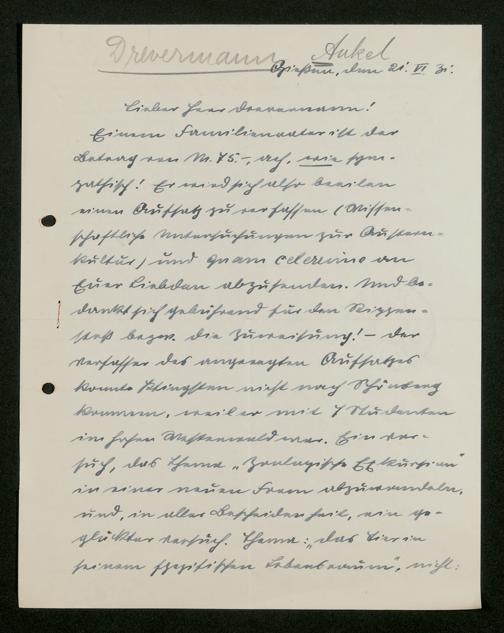 Drevermann Ankel
Gießen, den 21. VI 31.
Lieber Herr Drevermann!
Einem Familienvater ist der
Betrag von M. 75.–, ach, wie sym-
pathisch! Er wird sich also beeilen
einen Aufsatz zu verfassen (Wissen-
schaftliche Untersuchungen zur Austern-
kultur) und quam celerrime an
Euer Liebden abzusenden. Und be-
dankt sich gebührend für den Rippen-
stoß bezw. die Zuweisung! – Der
Verfasser des angeregten Aufsatzes
konnte Pfingsten nicht nach Schönberg
kommen, weil er mit 7 Studenten
im hohen Westerwald war. Ein Ver-
such, das Thema „Zoologische Exkursion"
in einer neuen Form abzuwandeln,
und, in aller Bescheidenheit, ein ge-
glückter Versuch. Thema: „Das Tier in
seinem spezifischen Lebensraum", nicht: